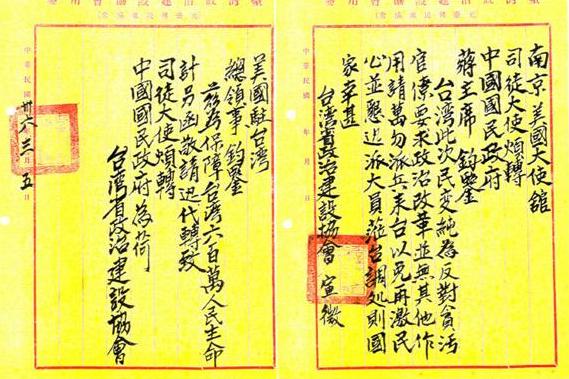 南京美國大使舘
司徒大使煩轉
中國國民政府
蔣主席 鈞鑒
台湾此次民变純為反對貪污
官僚要求政治改革並無其他作
用請萬勿派兵来台以免再激民
心並懇迅派大員蒞台調処則國
家幸甚
台湾省政治建設協會
中華民國 年 月 日
美國駐台湾
總領事 鈞鑒
茲為保障台湾六百萬人民生命
計另函敬請迅代轉致
司徒大使煩轉
中國國民政府為荷
台湾省政治建設協會
中華民國卅六年三月五日